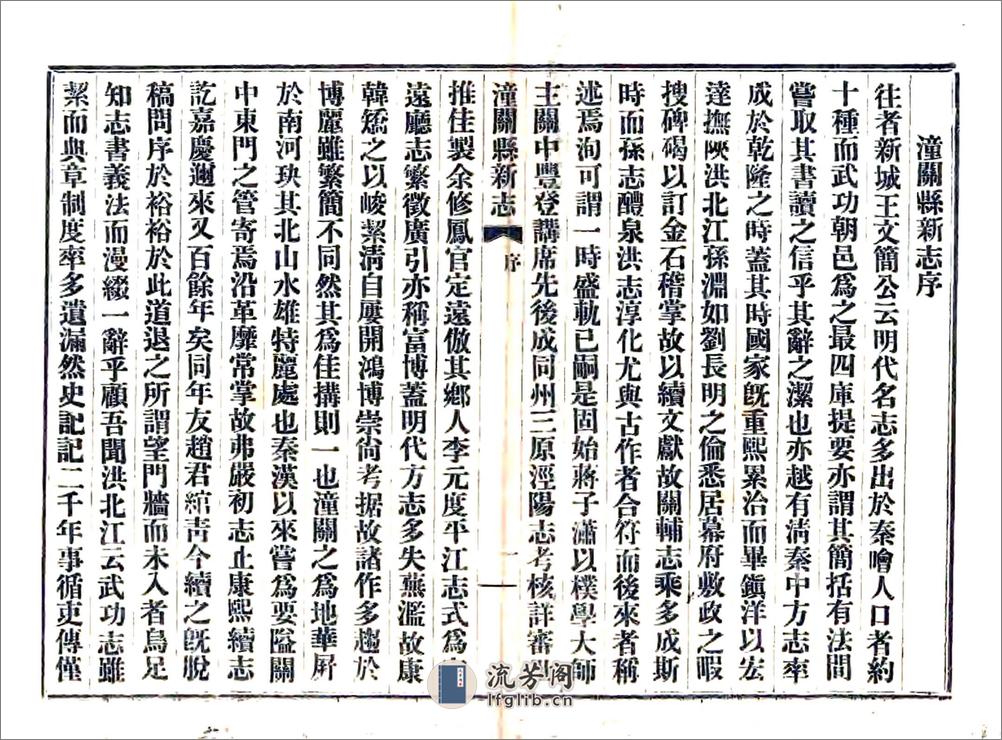 潼關縣新志序
往者新城王文簡公云明代名志多出於秦噲人口者約
十種而武功朝邑爲之最四庫提要亦謂其簡括有法間
嘗取其書讀之信乎其辭之潔也亦越有淸秦中方志率
成於乾隆之時蓋其時國家旣重熙累治而畢鎭洋以宏
達撫陝洪北江孫淵如劉長明之倫悉居幕府敷政之暇
搜碑碣以訂金石稽掌故以續文獻故關輔志乘多成斯
時而孫志醴泉洪志淳化尤與古作者合符而後來者稱
述焉洵可謂一時盛軌已嗣是固始蔣子瀟以樸學大師
主關中豐登講席先後成同州三原涇陽志考核詳審
潼關縣新志 序 一
推佳製余修鳳官定遠倣其鄕人李元度平江志式爲
遠廳志繁徵廣引亦稱富博蓋明代方志多失蕪濫故康
韓矯之以峻絜淸自屢開鴻博崇尙考据故諸作多趨於
博麗雖繁簡不同然其爲佳搆則一也潼關之爲地華屛
於南河玦其北山水雄特麗處也秦漢以來嘗爲要隘關
中東門之管寄焉沿革靡常掌故弗嚴初志止康熙續志
訖嘉慶邇來又百餘年矣同年友趙君綰靑今續之旣脫
稿問序於裕裕於此道退之所謂望門牆而未入者烏足
知志書義法而漫綴一辭乎顧吾聞洪北江云武功志雖
絜而典章制度率多遺漏然史記記二千年事循吏傳僅
流芳阁
lfglib.cn